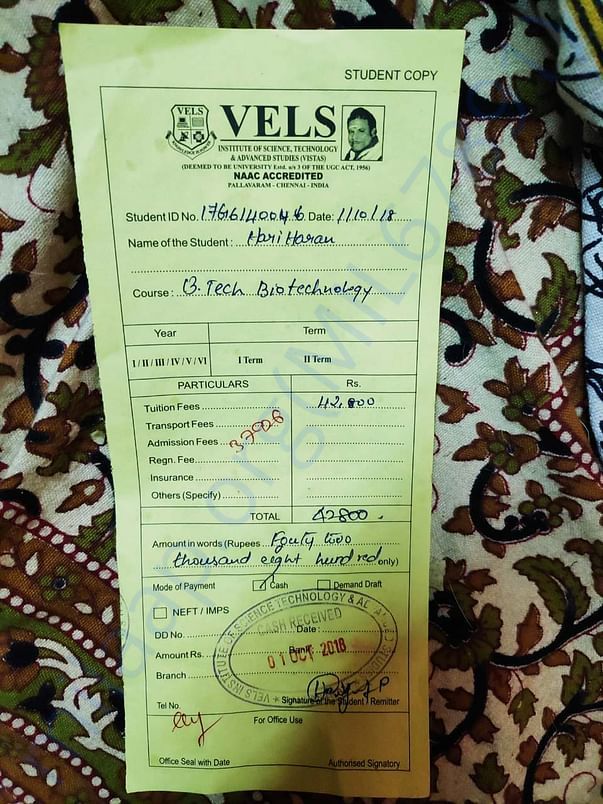 STUDENT COPY
VELS
VELS
INSTITUTE OF SCIENCE, TECHNOLOGY
& ADVANCED STUDIES (VISTAS)
(DEEMED TO BE UNIVERSITY Estd. u/s 3 OF THE UGC ACT, 1956)
NAAC ACCREDITED
PALLAVARAM - CHENNAI - INDIA
Student ID No. Date: 1/10/18
Name of the Student : Hari Haran
Course : B.Tech Biotechnology
Year Term
I / II / III / IV / V / VI I Term II Term
PARTICULARS Rs.
Tuition Fees 42,800
Transport Fees
Admission Fees
37926
Regn. Fee
Insurance
Others (Specify)
TOTAL 42800.
Amount in words (Rupees Fourty two
thousand eight hundred only)
Mode of Payment Cash Demand Draft
NEFT / IMPS
DD No. Date :
CASH RECEIVED
Amount Rs. Bank
01 OCT 2018
Branch
Signature of the Student / Remitter
Tel No.
For Office Use
Office Seal with Date Authorised Signatory